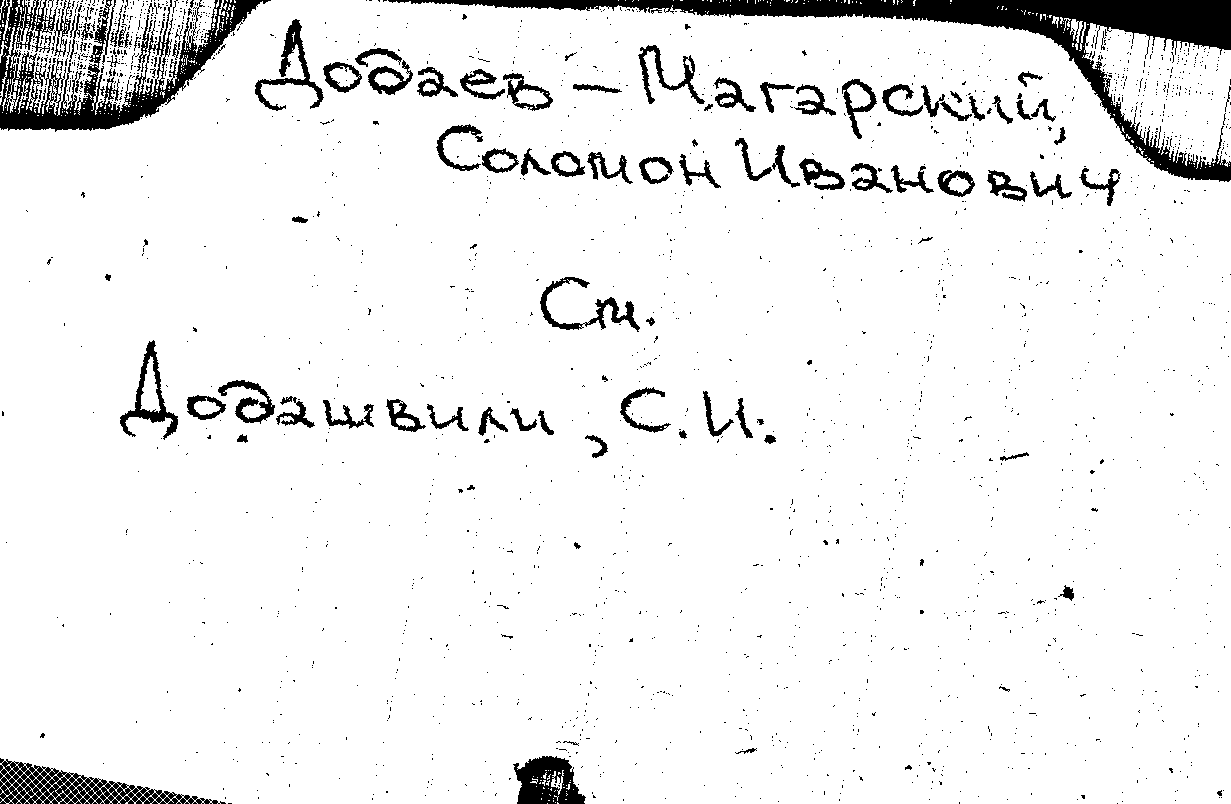 Додаев – Магарский,
Соломон Иванович
См.
Додашвили, С. И.